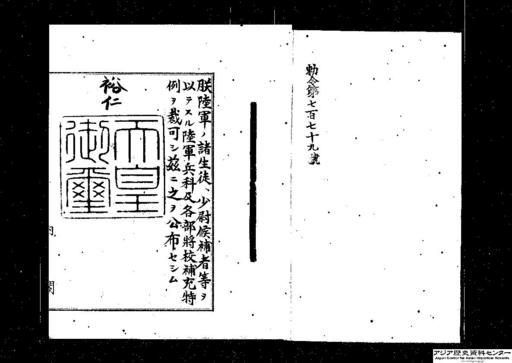 勅令第七百七十九號
朕陸軍ノ諸生徒、少尉候補者等ヲ
以テスル陸軍兵科及各部將校補充特
例ヲ裁可シ茲ニ之ヲ公布セシム
裕仁
天皇
御璽
内
閣
アジア歴史資料センター
Japan Center for Asian Historical Records